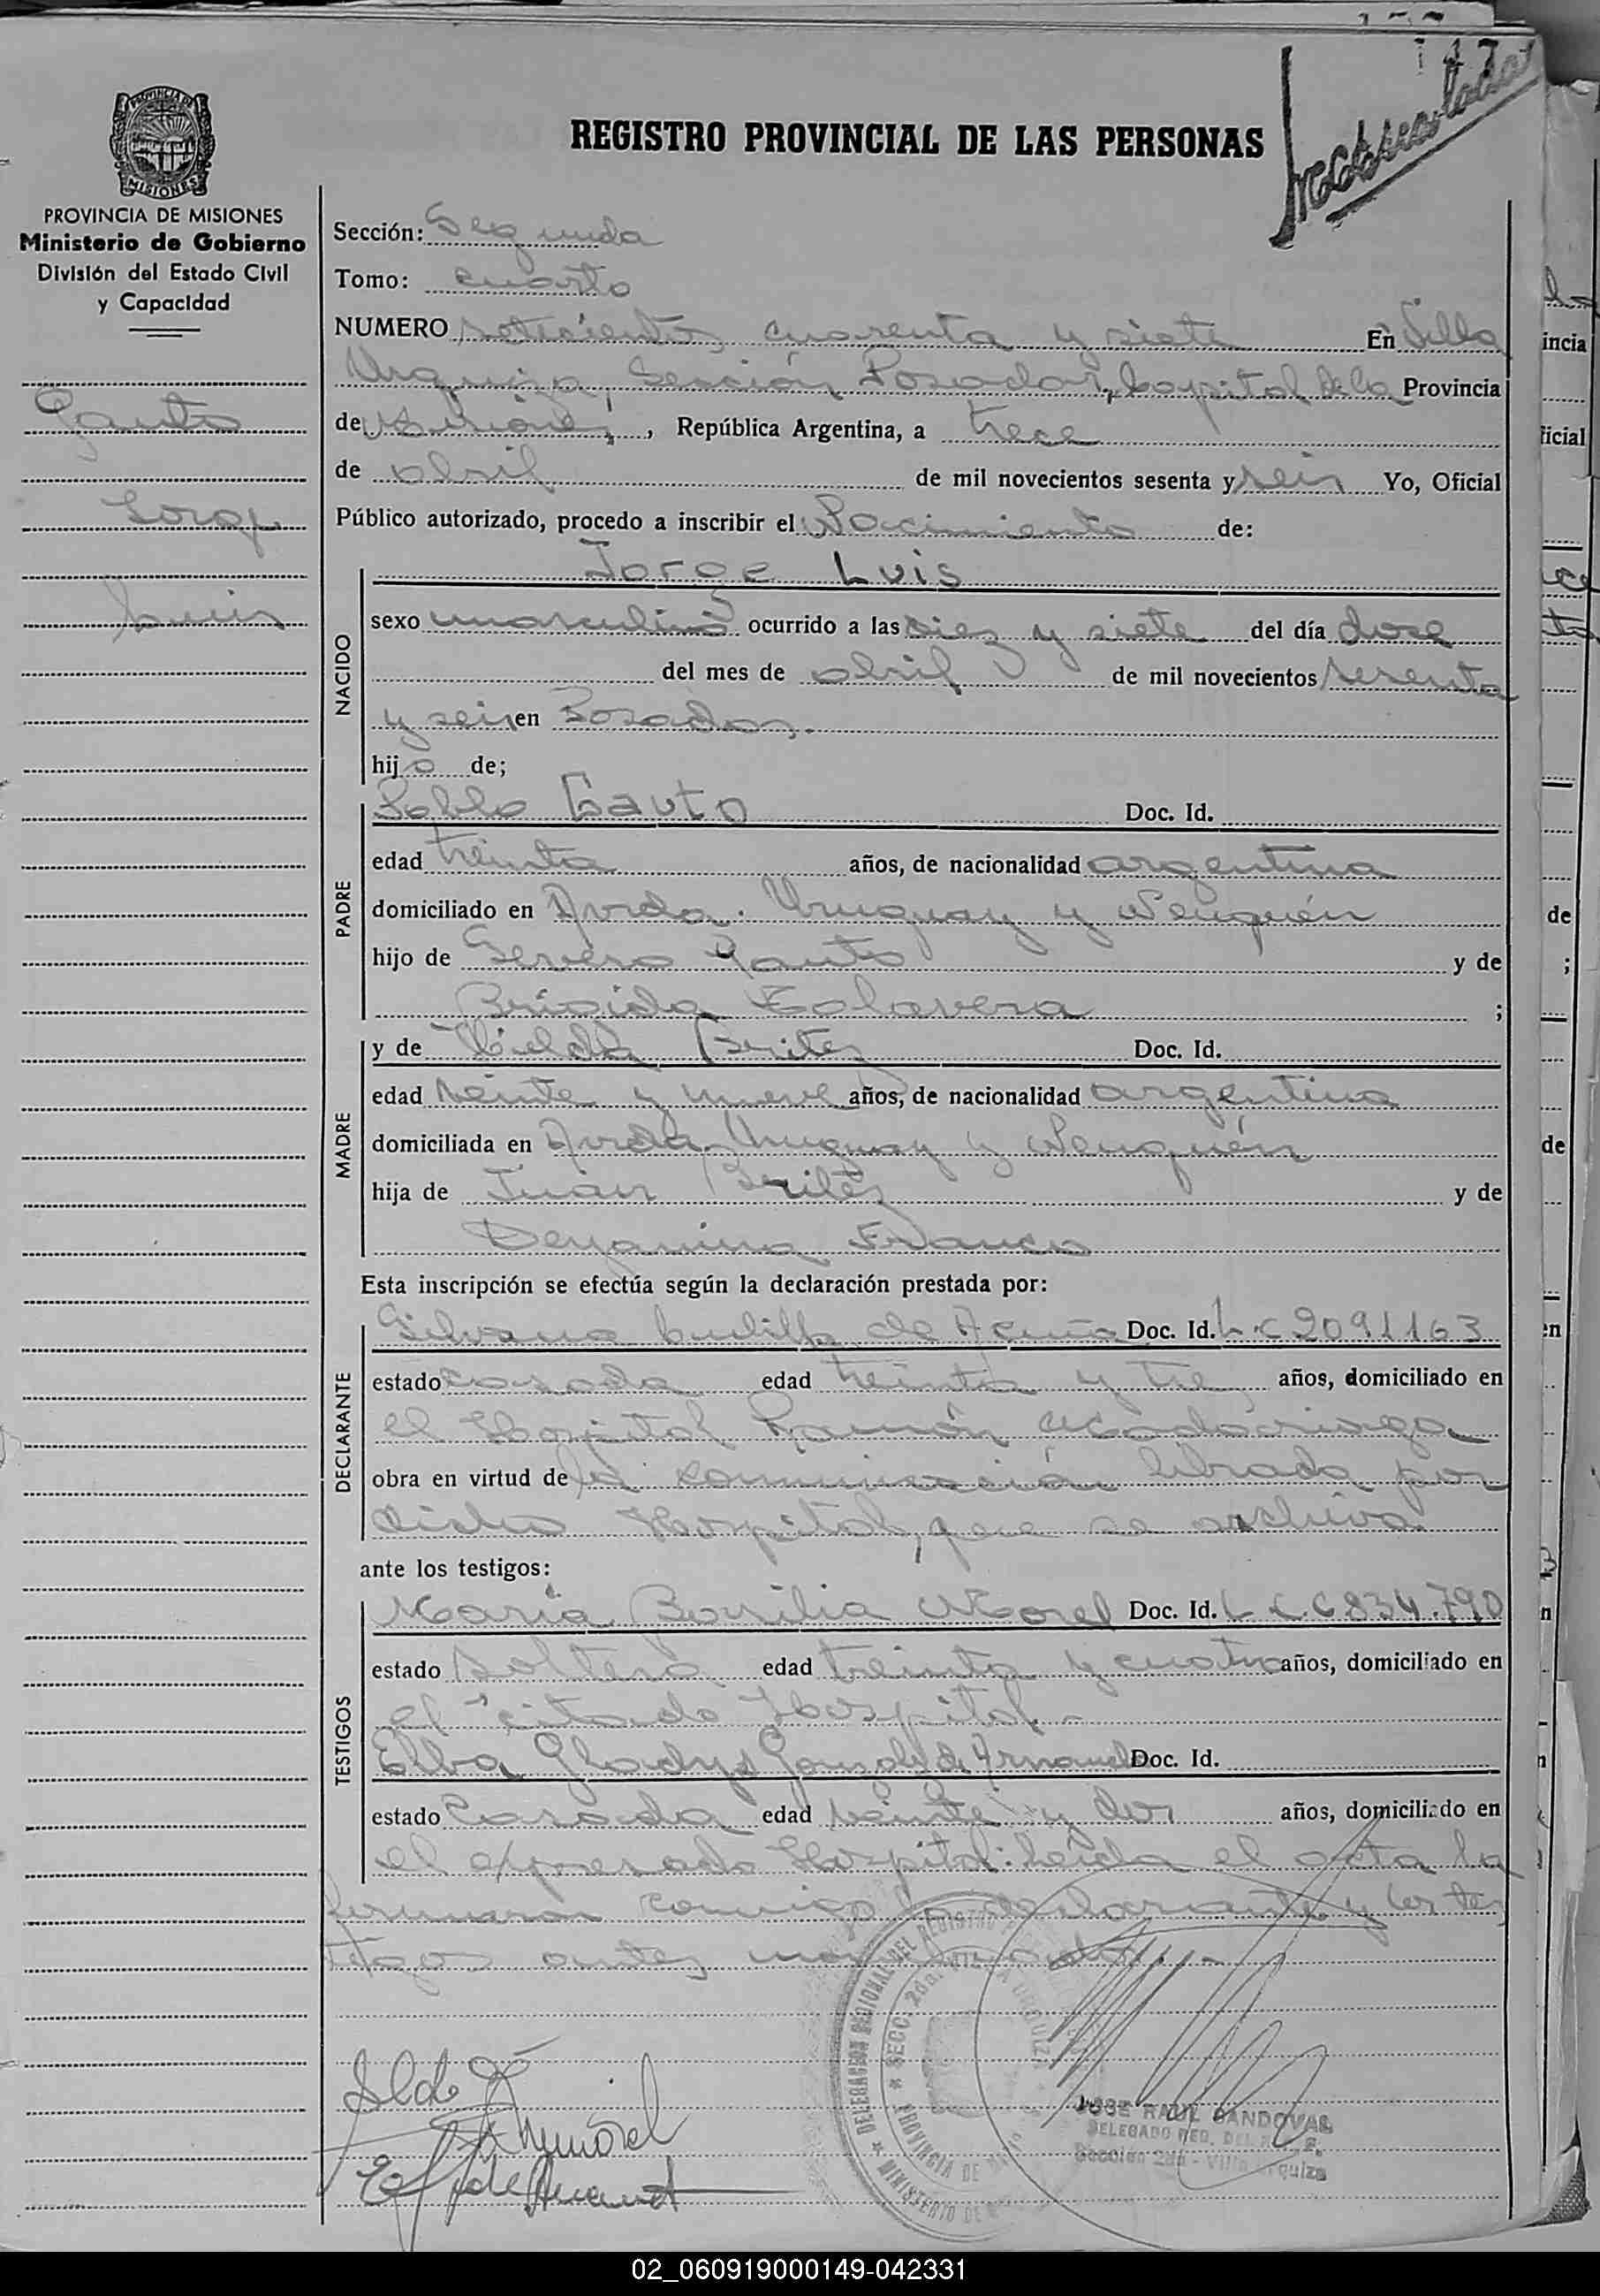 147
REGISTRO PROVINCIAL DE LAS PERSONAS
PROVINCIA DE MISIONES
Ministerio de Gobierno
División del Estado Civil
y Capacidad
Gauto
Jorge
Luis
Sección: Segunda
Tomo: cuarto
NUMERO setecientos cuarenta y siete En Villa
Urquiza, Sección Posadas, capital de la Provincia
de Misiones, República Argentina, a trece
de abril de mil novecientos sesenta y seis Yo, Oficial
Público autorizado, procedo a inscribir el Nacimiento de:
NACIDO
Jorge Luis
sexo masculino ocurrido a las diez y siete del día doce
del mes de abril de mil novecientos sesenta
y seis en Posadas.
hijo de;
PADRE
Pablo Gauto Doc. Id.
edad treinta años, de nacionalidad argentina
domiciliado en Avda. Uruguay y Neuquén
hijo de Severo Gauto y de
Brígida Talavera ;
MADRE
y de Britez Doc. Id.
edad veinte y nueve años, de nacionalidad argentina
domiciliada en Avda. Uruguay y Neuquén
hija de Juan Britez y de
Benjamina Franco
Esta inscripción se efectúa según la declaración prestada por:
DECLARANTE
Silvana de Acuña Doc. Id. L C 2091163
estado casada edad treinta y tres años, domiciliado en
el Hospital Ramón Madariaga
obra en virtud de la comunicación librada por
dicho Hospital, que se archiva
ante los testigos:
TESTIGOS
María Basilia Morel Doc. Id. L C 6834.790
estado soltera edad treinta y cuatro años, domiciliado en
el citado Hospital.-
Elba Gladys de Doc. Id.
estado casada edad veinte y dos años, domiciliado en
el expresado Hospital: leída el acta la
firmaron conmigo la declarante y los tes
tigos antes
DELEGACION REGIONAL DEL REGISTRO
SECC. 2da. VILLA URQUIZA
PROVINCIA DE
MINISTERIO DE
JOSE RAUL SANDOVAL
DELEGADO REG. DEL
Sección 2da - Villa Urquiza
02_060919000149-042331